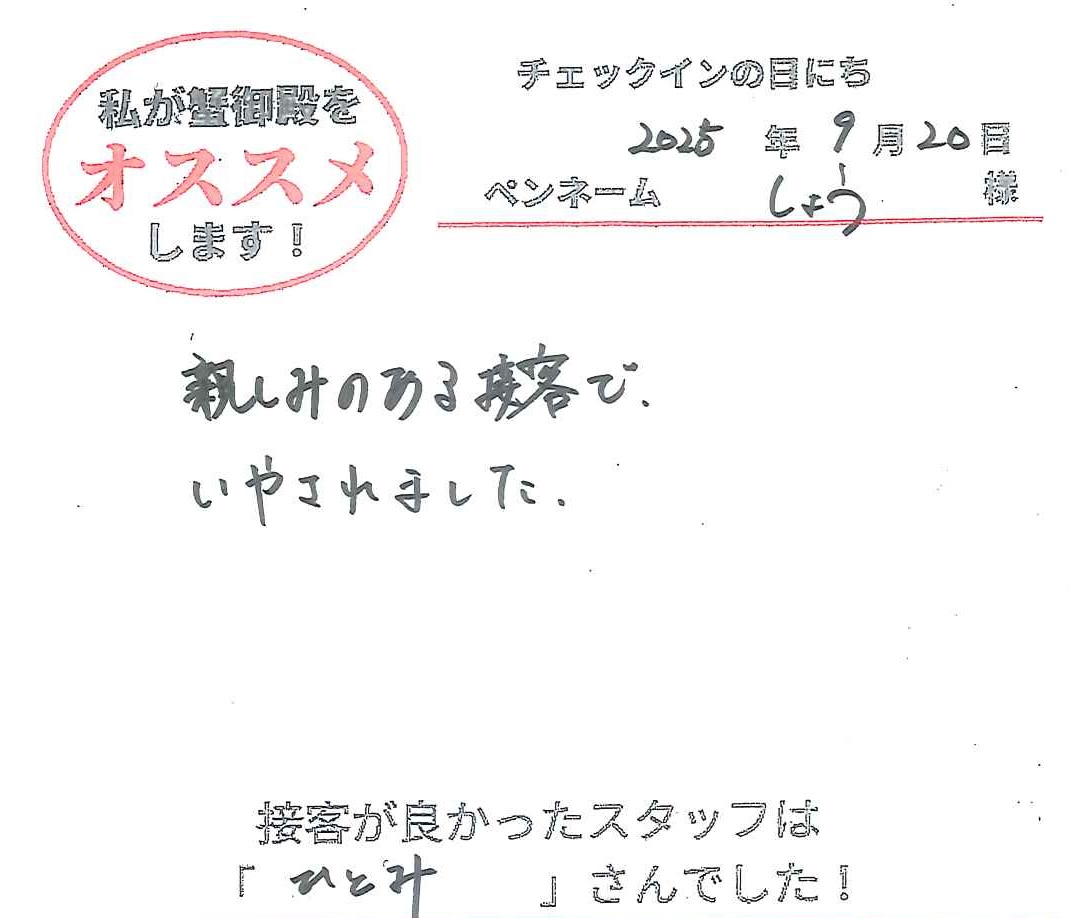 私が蟹御殿を
オススメ
します！
チェックインの日にち
2025 年 9 月 20 日
ペンネーム しょう 様
親しみのある接客で、
いやされました。
接客が良かったスタッフは
「 ひとみ 」さんでした！